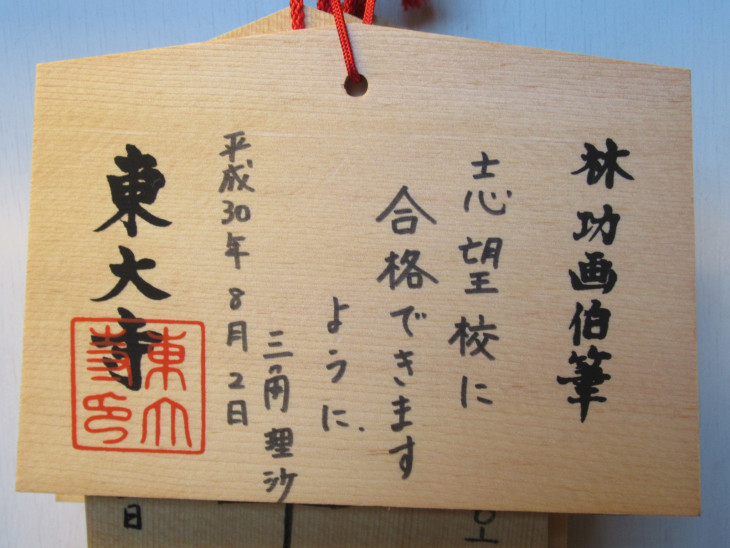 林功画伯筆
志望校に
合格できます
ように.
三角理沙
平成30年8月2日
東大寺
東大寺印
日